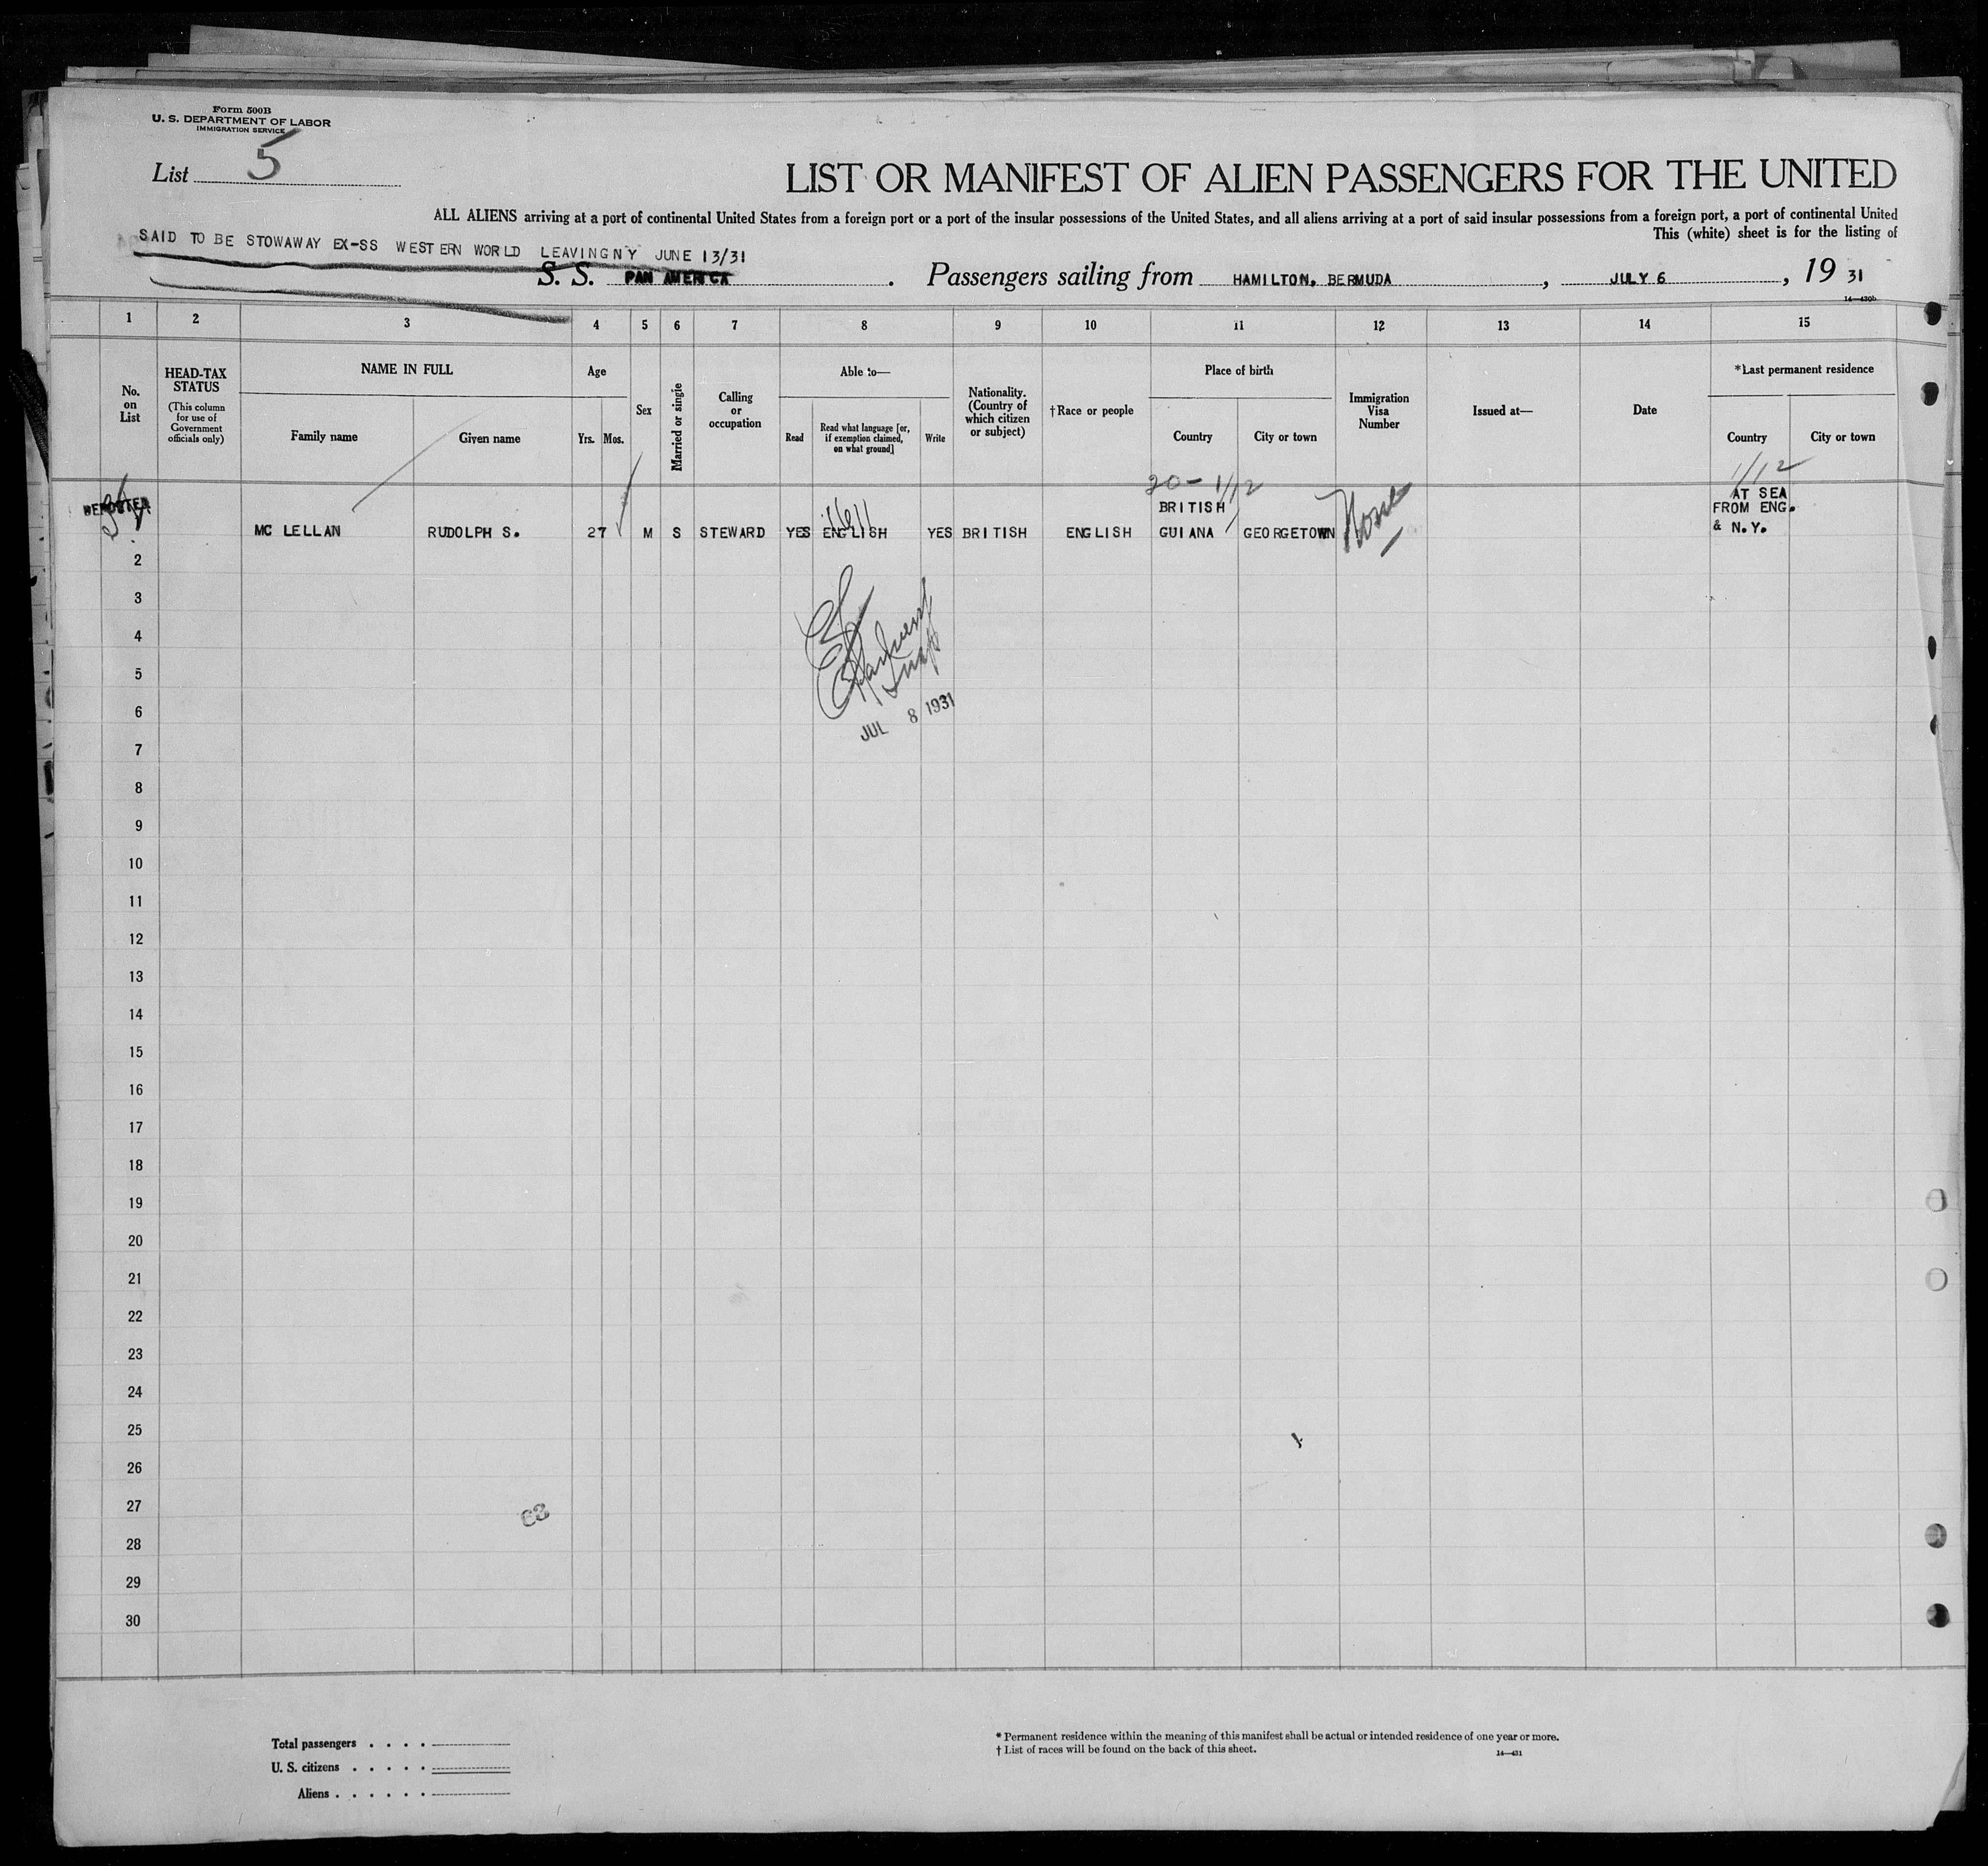 Form 500B
U. S. DEPARTMENT OF LABOR
IMMIGRATION SERVICE
List 5
LIST OR MANIFEST OF ALIEN PASSENGERS FOR THE UNITED
ALL ALIENS arriving at a port of continental United States from a foreign port or a port of the insular possessions of the United States, and all aliens arriving at a port of said insular possessions from a foreign port, a port of continental United
This (white) sheet is for the listing of
SAID TO BE STOWAWAY EX-SS WESTERN WORLD LEAVINGNY JUNE 13/31
S. S. PAN AMERICA . Passengers sailing from HAMILTON, BERMUDA , JULY 6 , 19 31
14—430b
1 2 3 4 5 6 7 8 9 10 11 12 13 14 15
No. on List
HEAD-TAX STATUS
(This column for use of Government officials only)
NAME IN FULL
Family name
Given name
Age
Yrs. Mos.
Sex
Married or single
Calling or occupation
Able to—
Read
Read what language [or, if exemption claimed, on what ground]
Write
Nationality. (Country of which citizen or subject)
†Race or people
Place of birth
Country
City or town
Immigration Visa Number
Issued at—
Date
*Last permanent residence
Country
City or town
20- 1/12
1/12
MC LELLAN RUDOLPH S. 27 M S STEWARD YES ENGLISH YES BRITISH ENGLISH BRITISH GUIANA GEORGETOWN AT SEA FROM ENG. & N.Y.
2
3
4
5
6
JUL 8 1931
7
8
9
10
11
12
13
14
15
16
17
18
19
20
21
22
23
24
25
26
27
28
29
30
Total passengers . . . .
U. S. citizens . . . . .
Aliens . . . . . .
* Permanent residence within the meaning of this manifest shall be actual or intended residence of one year or more.
† List of races will be found on the back of this sheet.
14—431